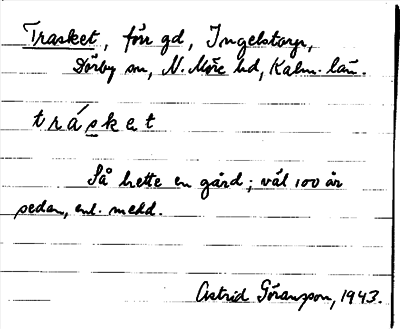 Trasket, förr gd, Ingelstorp,
Dörby sn, N. Möre hd, Kalm. län.
tráskat
Så hette en gård; väl 100 år
sedan, enl. medd.
Astrid Göransson, 1943.